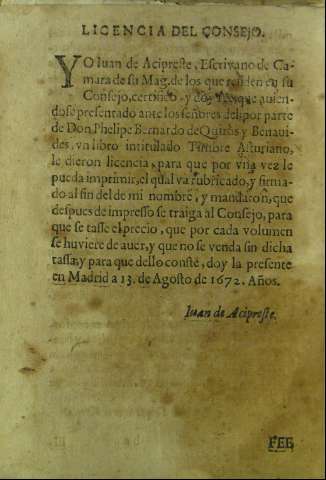 LICENCIA DEL CONSEJO.
YO Iuan de Acipreste, Escrivano de Ca-
mara de su Mag. de los que residen en su
Consejo, certifico, y doy fee, que auien-
dose presentado ante los señores dèl, por parte
de Don Phelipe Bernardo de Quiròs y Benaui-
des, vn libro intitulado Timbre Asturiano,
le dieron licencia, para que por vna vez le
pueda imprimir, el qual va rubricado, y firma-
do al fin del de mi nombre, y mandaron, que
despues de impresso se traiga al Consejo, para
que se tasse el precio, que por cada volumen
se huviere de auer, y que no se venda sin dicha
tassa; y para que dello conste, doy la presente
en Madrid a 13. de Agosto de 1672. Años.
Iuan de Acipreste.
FEE